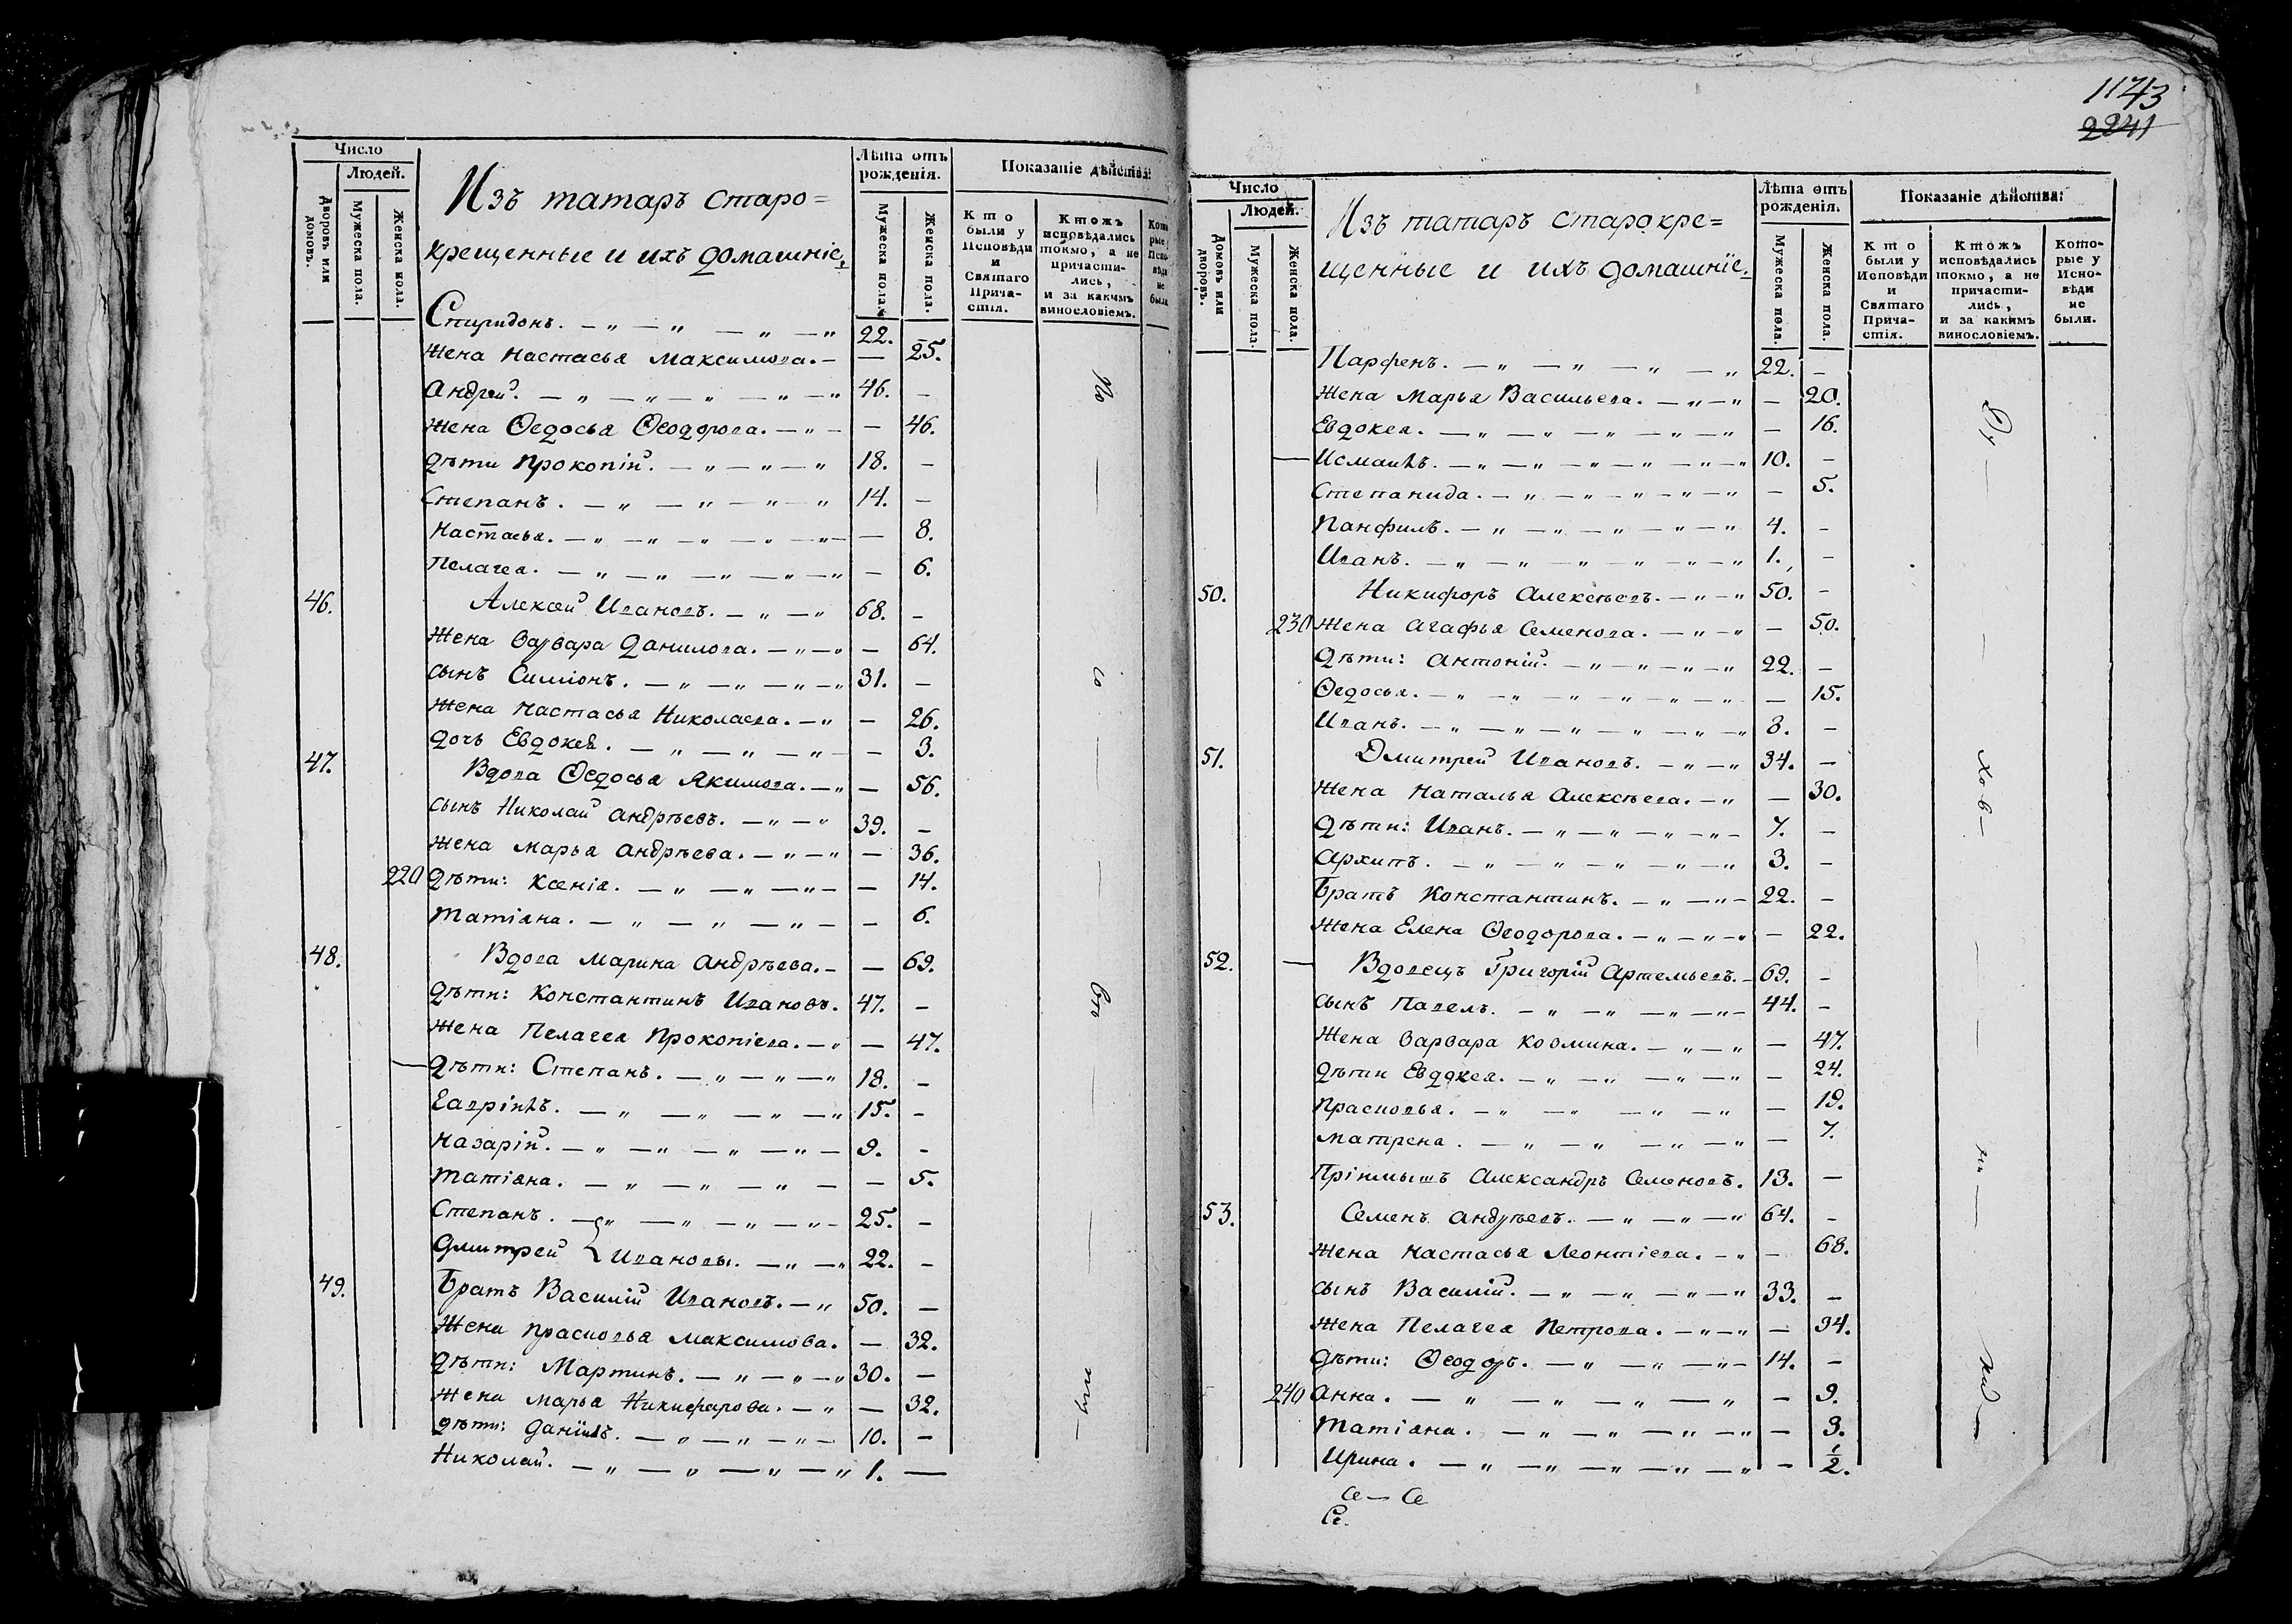 Число
Людей.
Дворовъ или домовъ.
Мужеска пола.
Женска пола.
Изъ татаръ старо=
крещенные и ихъ домашніе.
Лѣта отъ рожденія.
Мужеска пола.
Женска пола.
Показаніе дѣйства:
Кто были у Исповѣди и Святаго Причастія.
Ктожъ исповѣдались токмо, а не причастились, и за какимъ винословіемъ.
Спиридонъ. 22.
Жена Настасья Максимова. — 25.
Андрей. 46. —
Жена Ѳедосья Ѳеодорова. — 46.
Дѣти Прокопій. 18. —
Степанъ. 14. —
Настасья. — 8.
Пелагея. — 6.
46. Алексѣй Ивановъ. 68. —
Жена Варвара Данилова. — 64.
Сынъ Симіонъ. 31. —
Жена Настасья Николаева. — 26.
Дочь Евдокея. — 3.
47. Вдова Ѳедосья Якимова. — 56.
Сынъ Николай Андрѣевъ. 39. —
Жена Марья Андрѣева. — 36.
220 Дѣти: Ксенія. — 14.
Татіяна. — 6.
48. Вдова Марина Андрѣева. — 69.
Дѣти: Константинъ Ивановъ. 47. —
Жена Пелагея Прокопіева. — 47.
Дѣти: Степанъ. 18. —
Гавріилъ. 15. —
Назарій. 9. —
Татіяна. — 5.
Степанъ. 25. —
Дмитрей } Ивановы. 22. —
49. Братъ Василій Ивановъ. 50. —
Жена Прасковья Максимова. — 32.
Дѣти: Мартинъ. 30. —
Жена Марья Никифарова. — 32.
Дѣти: Даніилъ. 10. —
Николай. 1. —
1143
2241
Число
Людей.
Домовъ или дворовъ.
Мужеска пола.
Женска пола.
Изъ татаръ старокре=
щенные и ихъ домашніе.
Лѣта отъ рожденія.
Мужеска пола.
Женска пола.
Показаніе дѣйства:
Кто были у Исповѣди и Святаго Причастія.
Ктожъ исповѣдались токмо, а не причастились, и за какимъ винословіемъ.
Которые у Исповѣди не были.
Парфенъ. 22. —
Жена Марья Васильева. — 20.
Евдокея. — 16.
Исмаилъ. 10. —
Степанида. — 5.
Панфилъ. 4. —
Иванъ. 1. —
50. Никифоръ Алексѣевъ. 50. —
230 Жена Агафья Семенова. — 50.
Дѣти: Антоній. 22. —
Ѳедосья. — 15.
Иванъ. 8. —
51. Дмитрей Ивановъ. 34. —
Жена Наталья Алексѣева. — 30.
Дѣти: Иванъ. 7. —
Архипъ. 3. —
Братъ Константинъ. 22. —
Жена Елена Ѳеодорова. — 22.
52. Вдовецъ Григорій Артемьевъ. 69. —
Сынъ Павелъ. 44. —
Жена Варвара Козмина. — 47.
Дѣти Евдокея. — 24.
Прасковья. — 19.
Матрена. — 7.
Пріимышъ Александръ Семеновъ. 13. —
53. Семенъ Андрѣевъ. 64. —
Жена Настасья Леонтіева. — 68.
Сынъ Василій. 33. —
Жена Пелагея Петрова. — 34.
Дѣти: Ѳеодоръ. 14. —
240 Анна. — 9.
Татіяна. — 3.
Ирина. — 1/2.